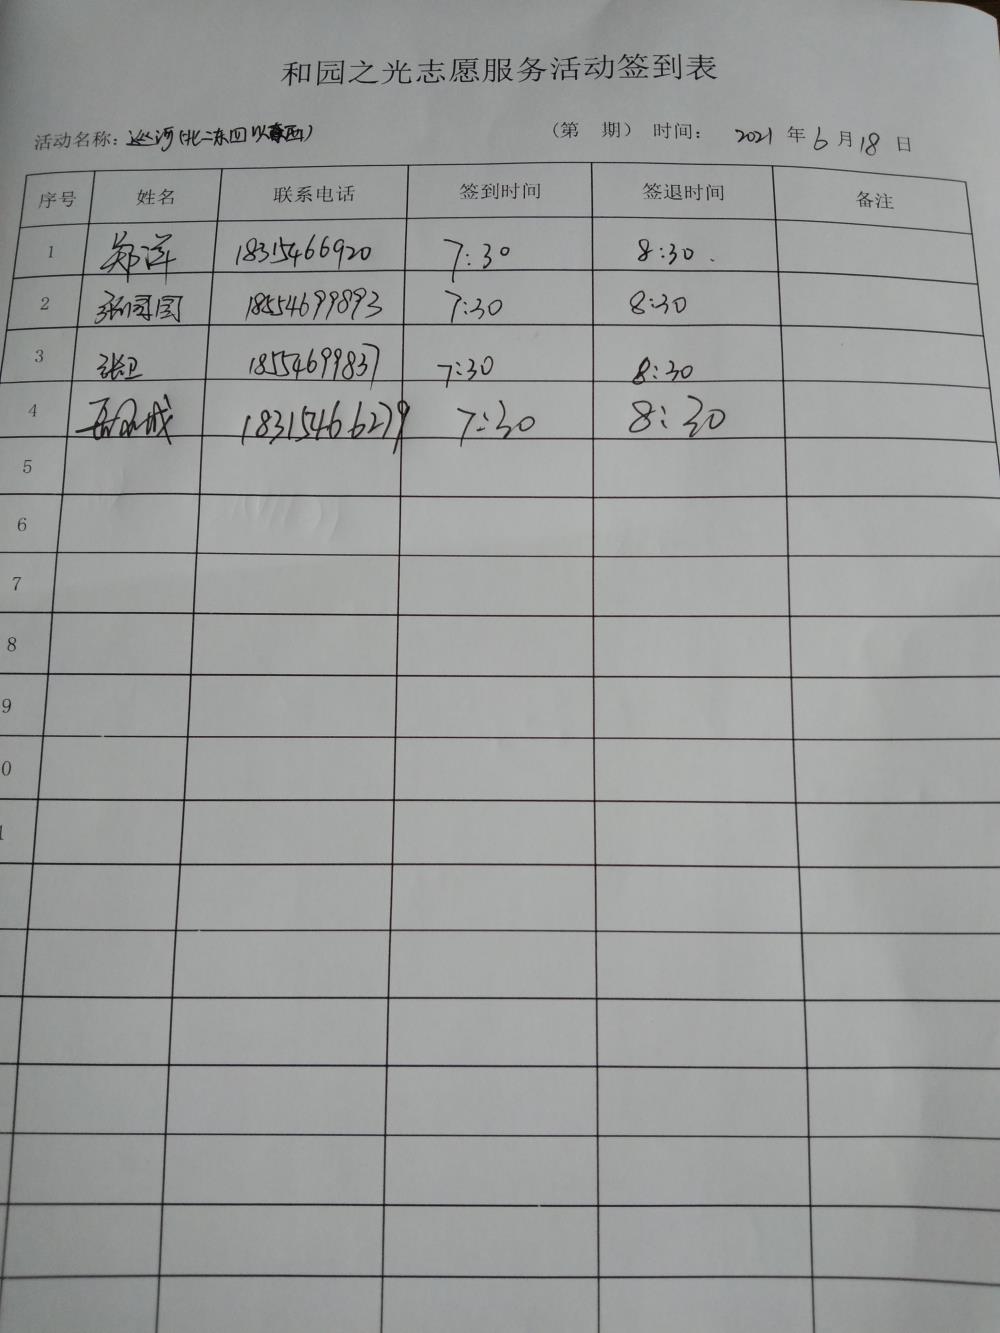 和园之光志愿服务活动签到表
活动名称：巡河(北二东四以西) （第 期） 时间： 2021 年 6 月 18 日
序号 姓名 联系电话 签到时间 签退时间 备注
1 郑洋 18315466920 7:30 8:30
2 18554699893 7:30 8:30
3 张卫 18554699837 7:30 8:30
4 18315466279 7:30 8:30
5
6
7
8
9
0
1